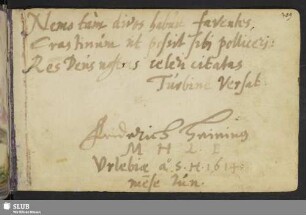 Nemo tàm divos habuit faventes,
Crastinum ut possit sibi polliceri:
Res Deus nostras celeri citatas
Turbine versat.
Friderich
M H L P
a. S. H. 1614.
mẽse Iun.
SLUB
Wir führen Wissen.